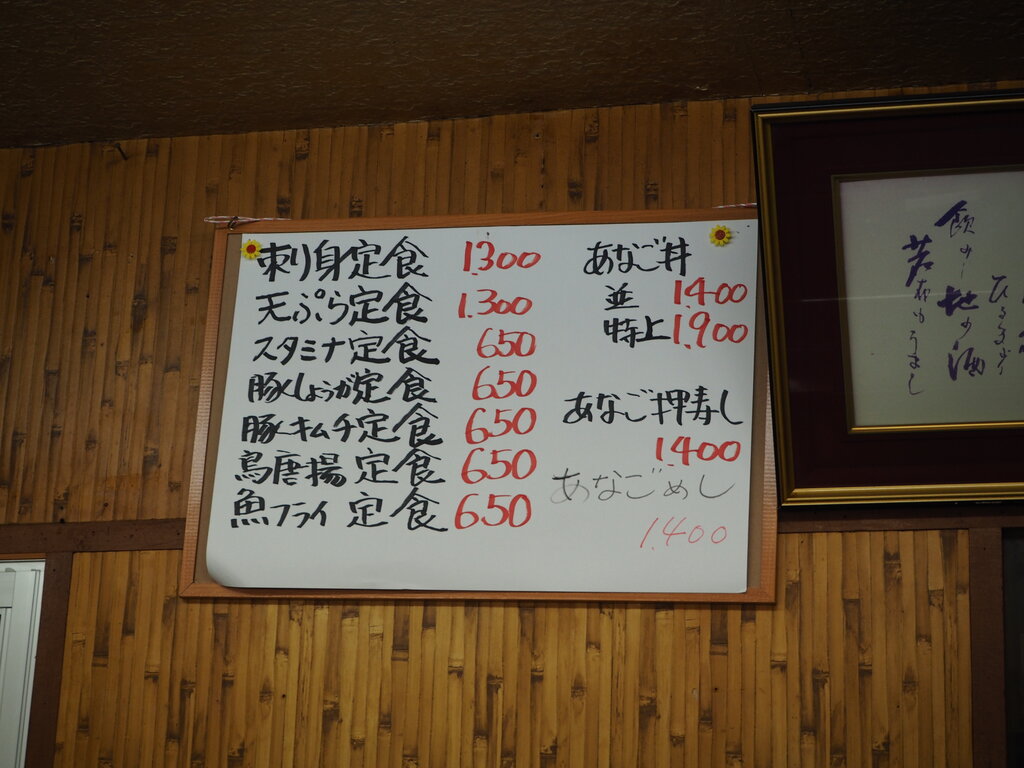 刺り身定食 1.300
天ぷら定食 1.300
スタミナ定食 650
豚しょうが定食 650
豚キムチ定食 650
鳥唐揚定食 650
魚フライ定食 650
あなご丼
並 1400
特上 1.900
あなご押寿し
1.400
あなごめし
1.400
飲み
地の酒